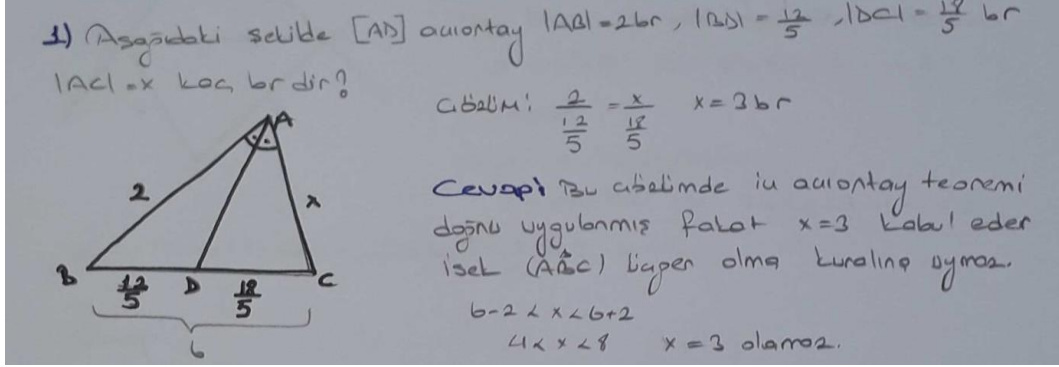 1) Aşağıdaki şekilde [AD] açıortay |AB|=2br, |BD|=12/5, |DC|=18/5 br
|AC|=x kaç br dir?
Çözüm: 2/(12/5) = x/(18/5) x=3br
A
2
x
B
12/5
D
18/5
C
6
Cevap: Bu çözümde iç açıortay teoremi
doğru uygulanmış fakat x=3 kabul eder
isek (ABC) üçgen olma kuralına uymaz.
6-2 < x < 6+2
4 < x < 8 x=3 olamaz.